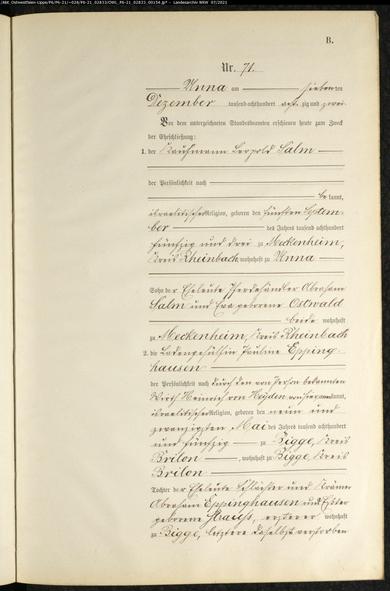 B.
Nr. 71.
Unna am siebenten
Dezember tausend achthundert acht zig und zwei
Vor dem unterzeichneten Standesbeamten erschienen heute zum Zweck
der Eheschließung:
1. der Kaufmann Leopold Salm
der Persönlichkeit nach
be kannt,
israelitischer Religion, geboren den fünften Septem-
ber des Jahres tausend achthundert
fünfzig und drei zu Meckenheim,
Kreis Rheinbach wohnhaft zu Unna
Sohn der Eheleute Pferdehändler Abraham
Salm und Eva geborene Ostwald
beide wohnhaft
zu Meckenheim, Kreis Rheinbach
2. die Ladengehülfin Pauline Epping-
hausen
der Persönlichkeit nach durch den von Person bekannten
Wirth Heinrich von Heyden von hier kannt,
israelitischer Religion, geboren den neun und
zwanzigsten Mai des Jahres tausend achthundert
und fünfzig zu Bigge, Kreis
Brilon, wohnhaft zu Bigge, Kreis
Brilon
Tochter der Eheleute und Krämer
Abraham Eppinghausen und Ester
geborene Strauss, ersterer wohnhaft
zu Bigge, letztere daselbst verstorben